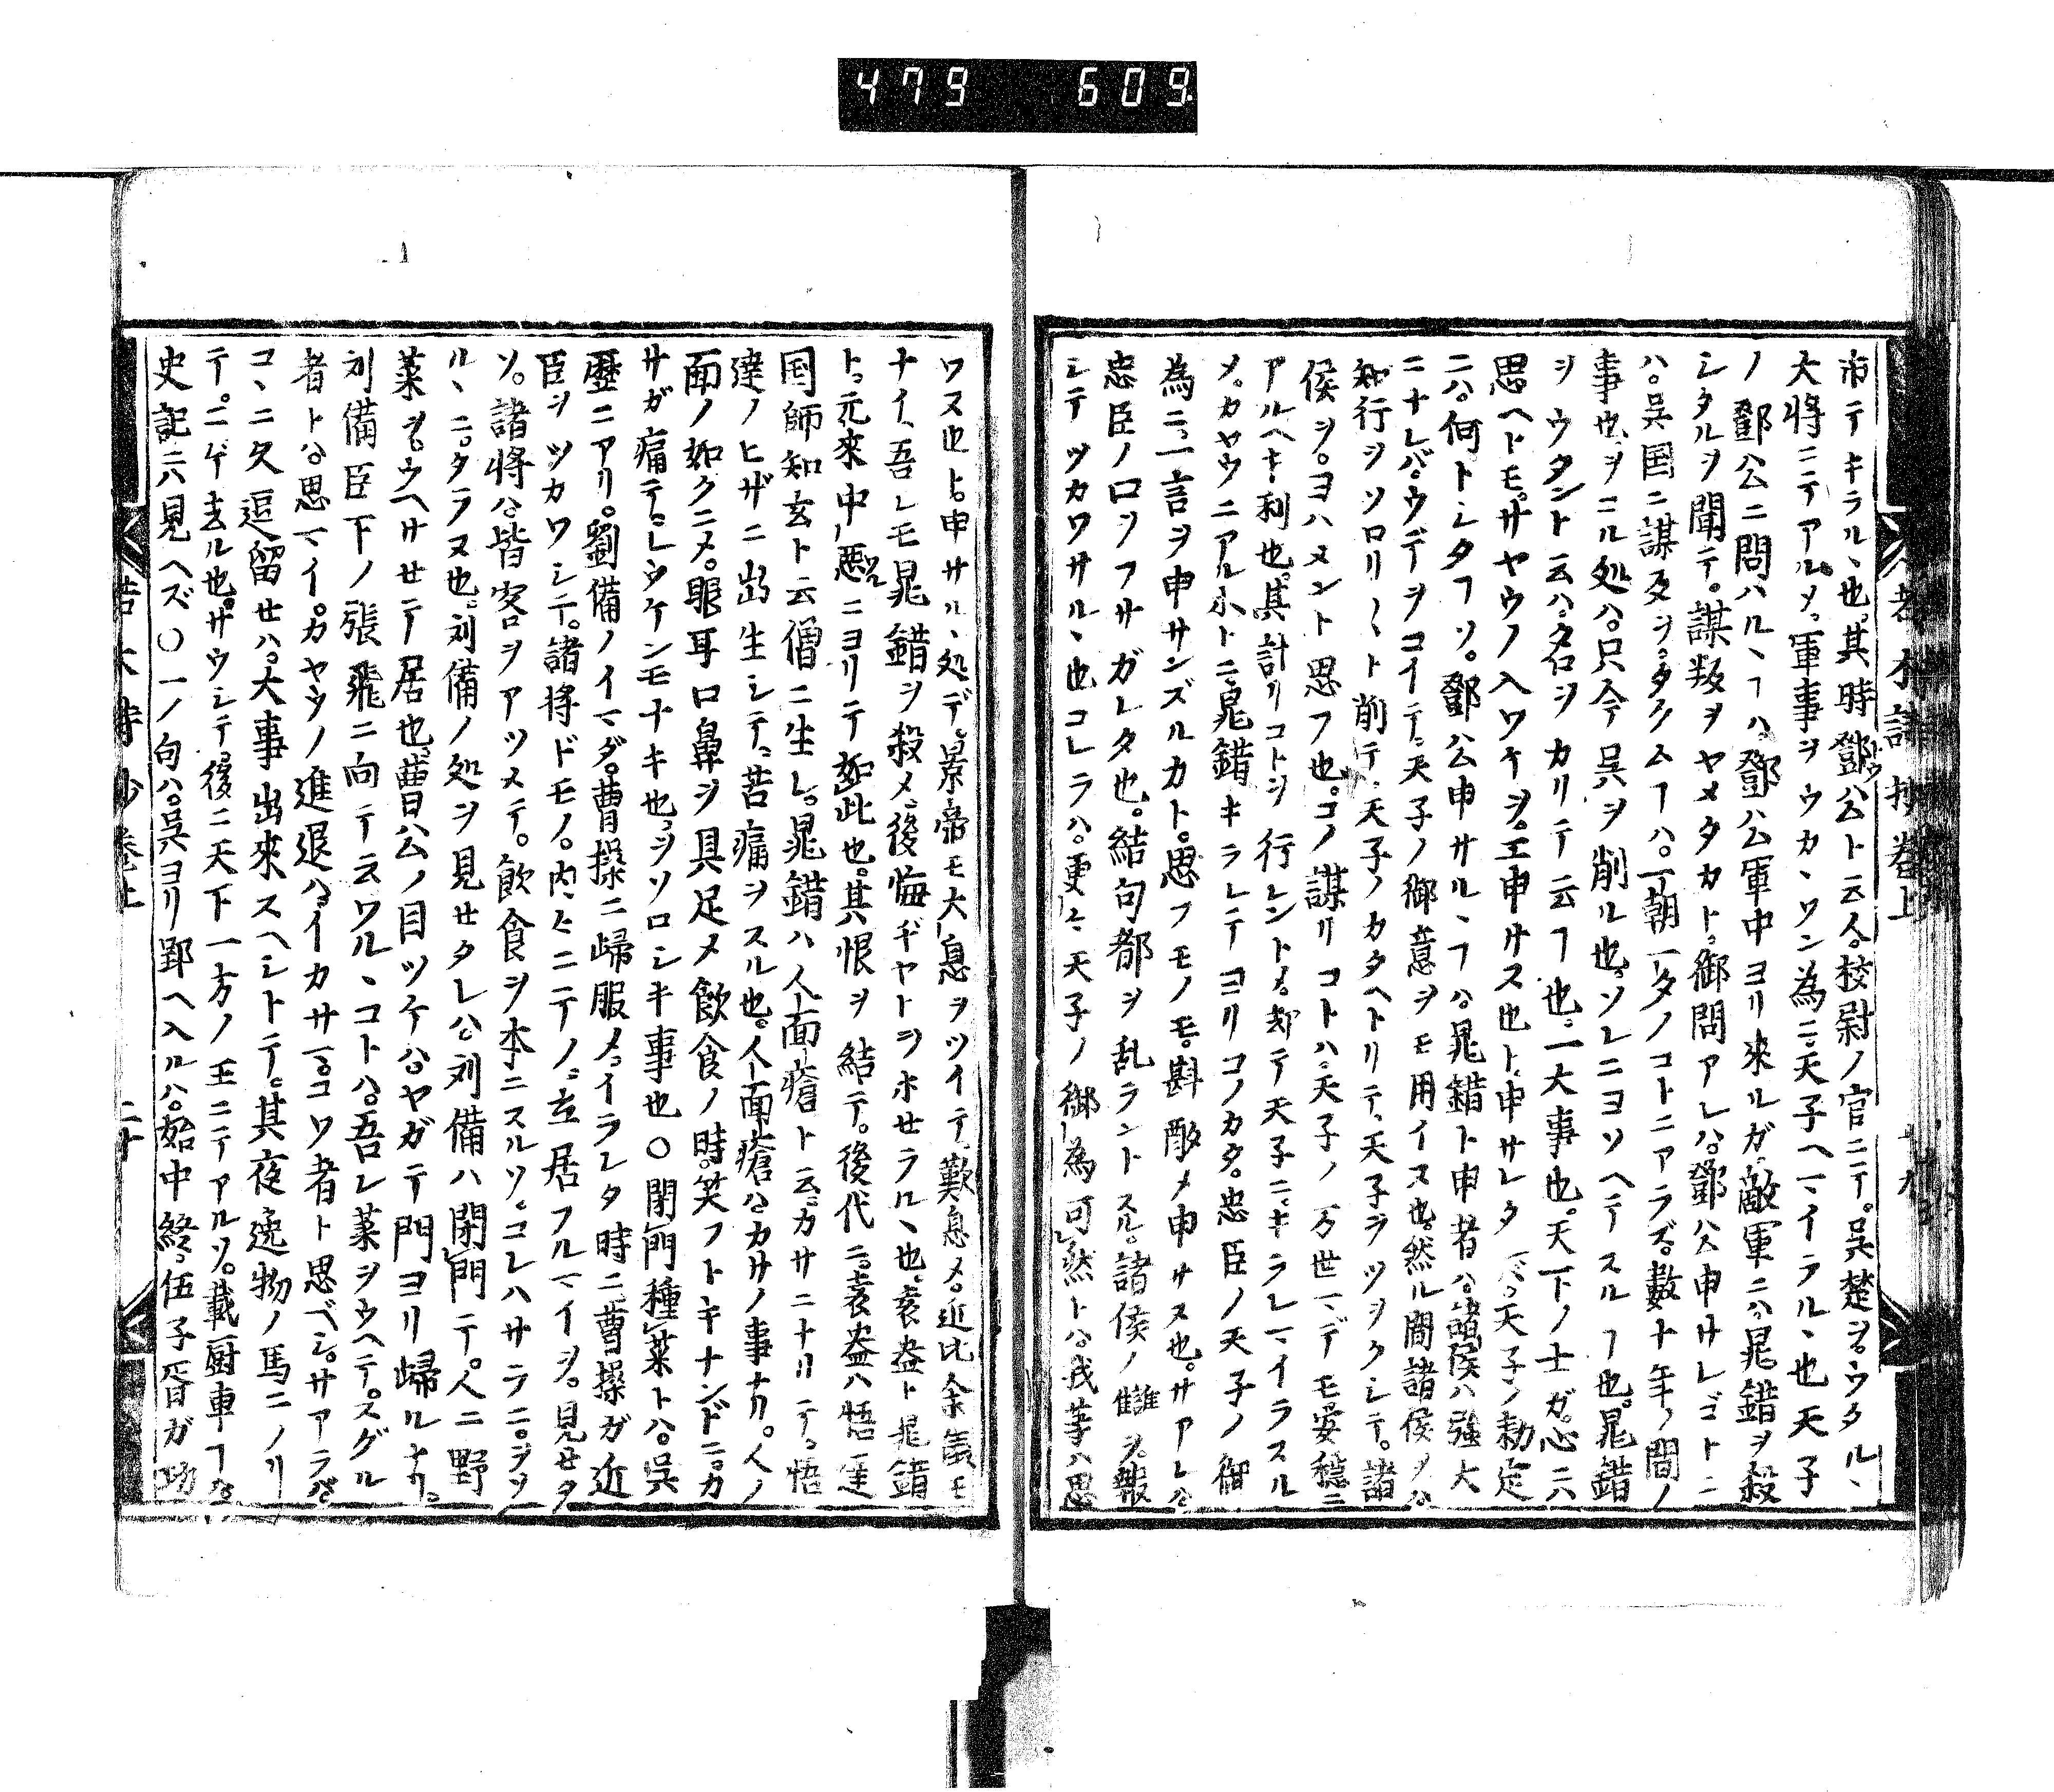 479 609
市テキラルヽ也其時鄧公ト云人校尉ノ官ニテ呉楚ヲウタルヽ
大将ニテアルメ軍事ヲウカヽワン為ニ天子ヘマイラルヽ也天子
ノ鄧公ニ問ハルヽヿハ鄧公軍中ヨリ來ルガ敵軍ニハ晁錯ヲ殺
シタルヲ聞テ謀叛ヲヤメタカト御問アレハ鄧公申サレゴトニ
ハ呉国ニ謀反ヲタクムヿハ一朝一夕ノコトニアラズ数十年ノ間ノ
事也ヲコル処ハ只今呉ヲ削ル也ソレニヨソヘテスルヿ也晁錯
ヲウタント云ハ名ヲカリテ云ヿ也一大事也天下ノ士ガ心ニハ
思ヘトモサヤウノ入ワケヲエ申サス也ト申サレタ天子ノ勅定
ニハ何トシタヿソ鄧公申サルヽヿハ晁錯ト申者ハ諸侯ハ強大
ニナレバウデヲコイテ天子ノ御意ヲモ用イス也然ル間諸侯ノ
知行ヲソロリ〱ト削テ天子ノカタヘトリテ天子ヲツヲクシテ諸
侯ヲヨハメント思フ也コノ謀リコトハ天子ノ万世マデモ安穏ニ
アルヘキ利也其計リコトヲ行レントメ却テ天子ニキラレマイラスル
メカヤウニアル小トニ晁錯キラレテヨリコノカタ忠臣ノ天子ノ御
為ニ一言ヲ申サンズルカト思フモノモ斟酌メ申サス也サアレハ
忠臣ノ口ツフサガレタ也結句都ヲ乱ラントスル諸侯ノ讎ヲ報
シテツカワサルヽ也コレラハ更ニ天子ノ御為可然トハ我等ハ思
ワス也ト申サルヽ処デ景帝モ大息ヲツイテ歎息メ近比余義モ
ナイ吾レモ晁錯ヲ殺メ後悔ヂヤトヲホセラルヽ也袁盎ト晁錯
ト元來中悪ニヨリテ如此也其恨ヲ結テ後代ニ袁盎ハ悟達
国師知玄ト云僧ニ生レ晁錯ハ人面瘡ト云カサニナリテ悟
達ノヒザニ出生シテ苦痛ヲスル也人面瘡ハカサノ事ナリ人ノ
面ノ如クニメ眼耳口鼻ヲ具足メ飲食ノ時笑フトキナンドニカ
サガ痛テレウケンモナキ也ヲソロシキ事也〇閉門種菜トハ呉
歴ニアリ劉備ノイマダ曹操ニ歸服メイラレタ時ニ曹操ガ近
臣ヲツカワシテ諸将ドモノ内々ニテノ立居フルマイヲ見せタ
ソ諸将ハ皆客ヲアツメテ飲食ヲ本ニスルソコレハサラニヲソ
ルヽニタラヌ也刘備ノ処ヲ見せタレハ刘備ハ閉門テ人ニ野
菜ヲウヘサせテ居也曹公ノ目ツケハヤガテ門ヨリ歸ルナリ
刘備臣下ノ張飛ニ向テ云ワルヽコトハ吾レ菜ヲウヘテスグル
者トハ思マイカヤウノ進退ハイカサマコワ者ト思ベシサアラバ
コヽニ久逗留せハ大事出來スヘシトテ其夜逸物ノ馬ニノリ
テニゲ去ル也サウシテ後ニ天下一方ノ王ニテアルソ載厨車ヿハ
史記ニハ見ヘズ〇一ノ句ハ呉ヨリ郢ヘ入ルハ始中終伍子胥ガ功